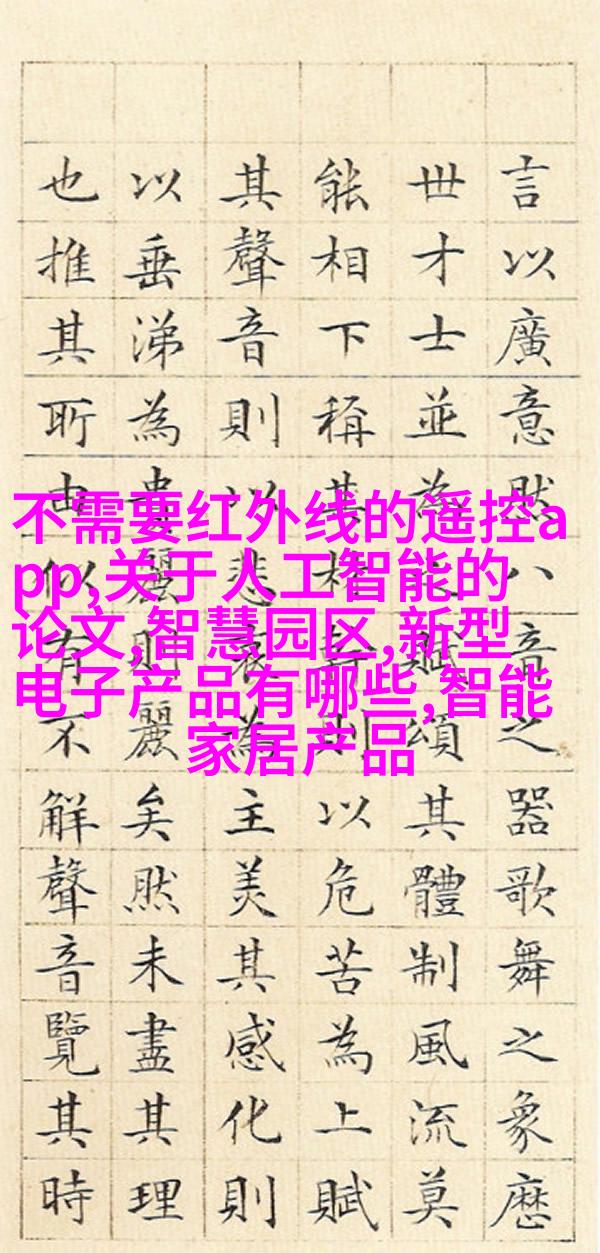 言以廣意然八音之器歌舞之象歷
世才士並為之賦頌其體制風流莫
能相下稱其材幹則以危苦為上賦
其聲音則以悲哀為主美其感化則
以垂涕為貴麗則麗矣然未盡其理
也推其所由似有不解聲音覽其時
不需要红外线的遥控a
pp,关于人工智能的
论文,智慧园区,新型
电子产品有哪些,智能
家居产品